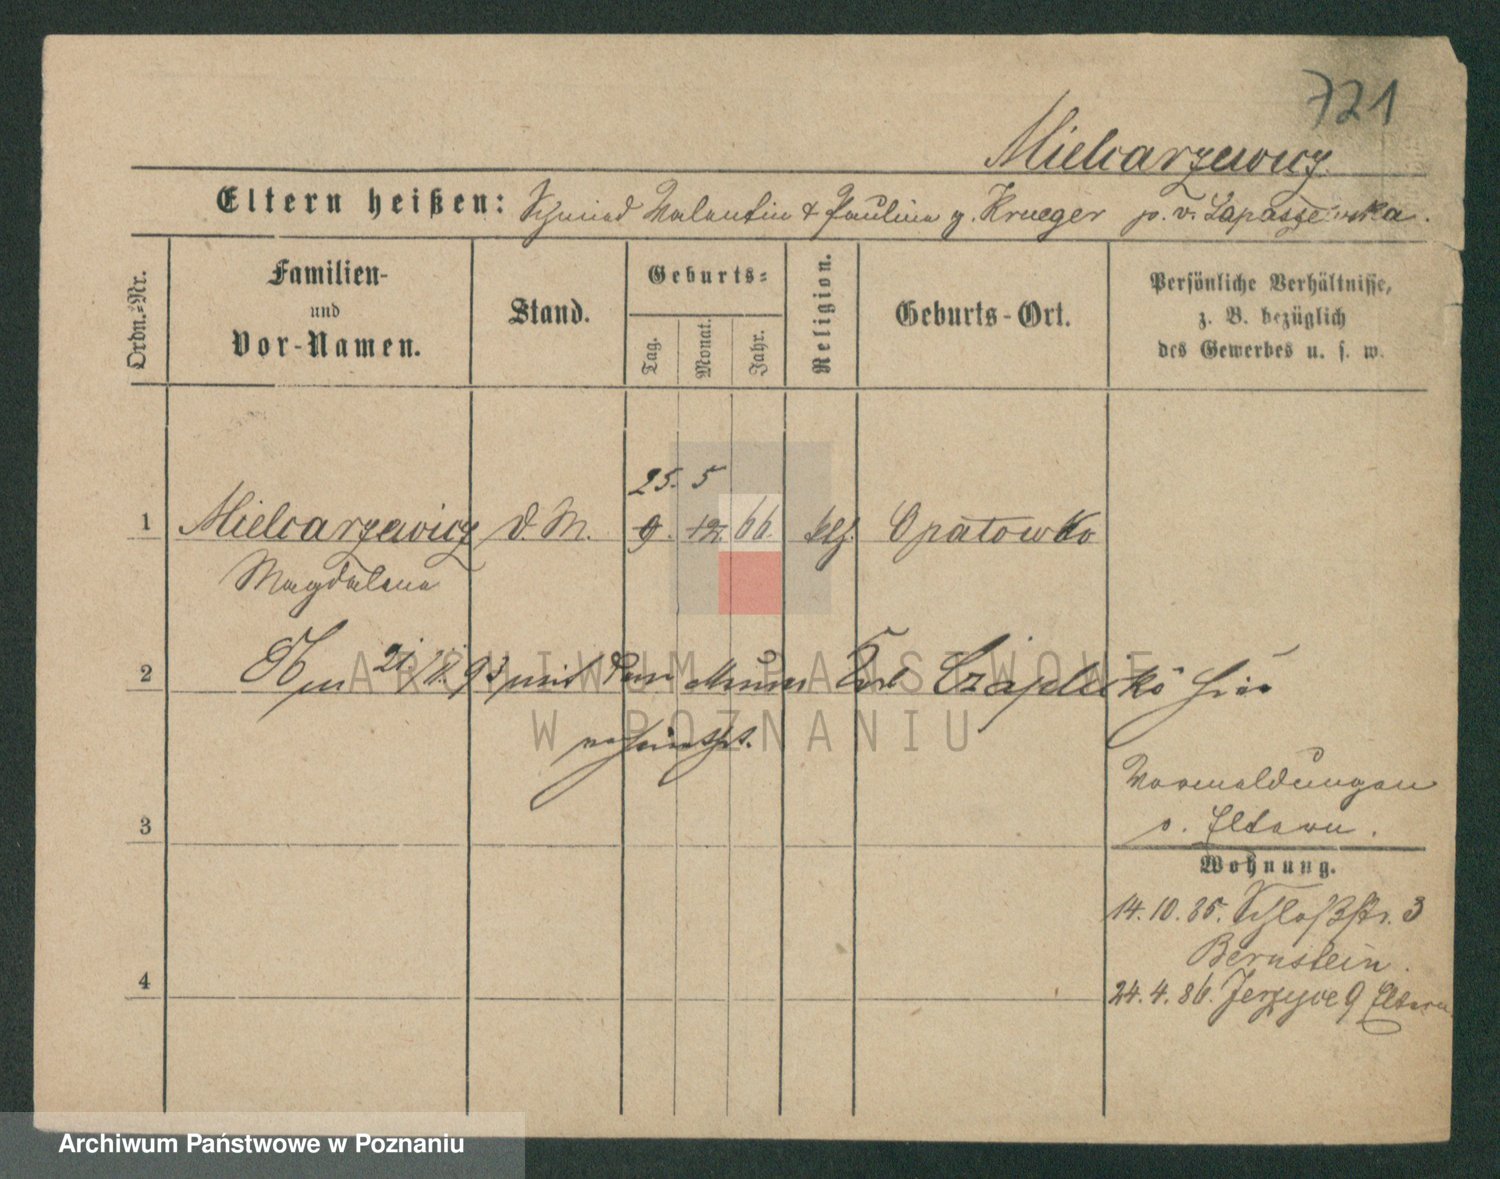 721
Mielcarzewicz
Eltern heißen: Schmied Valentin & Pauline g. Krueger p. v. Lapaszewska.
Ordn.-Nr.
Familien-
und
Vor-Namen.
Stand.
Geburts-
Tag.
Monat.
Jahr.
Religion.
Geburts-Ort.
Persönliche Verhältnisse,
z. B. bezüglich
des Gewerbes u. s. w.
25. 5
1 Mielcarzewicz d. M. 9. 12. 66. klh. Opatowko
Magdalena
2 Am 21/ 93 mit dem Carl Czaplicki hier
verheirathet.
Vormeldungen
s. Eltern.
3
Wohnung.
14.10.85. Schloßstr. 3
Bernstein.
4
24.4.86. Jerzyce 9 Eltern
ARCHIWUM PAŃSTWOWE
W POZNANIU
Archiwum Państwowe w Poznaniu